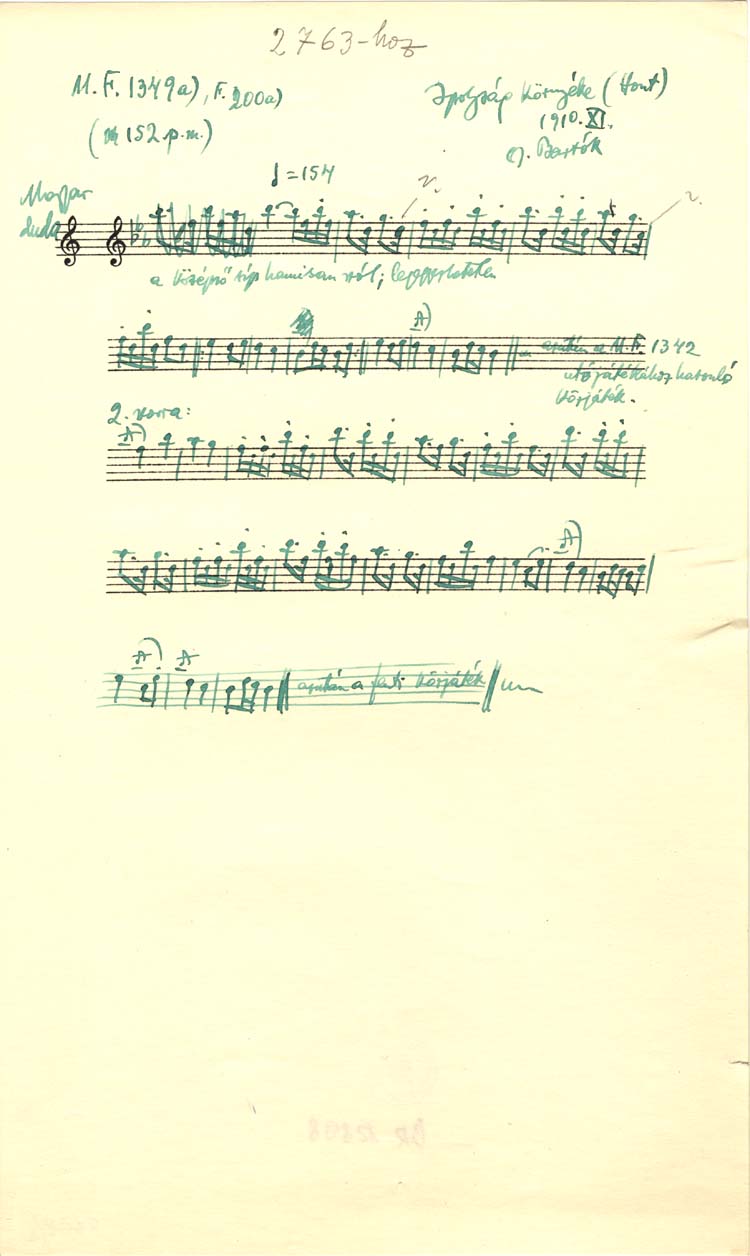 2763-hoz
M. F. 1349a), F. 200a)
Ipolyság környéke (Hont)
(152 p.m.)
1910. XI.
Gy. Bartók
♩ = 154
Magyar
duda
v.
v.
a középső síp hamisan szól; lejegyezhetetlen
A)
azután a M. F. 1342
utójátékához hasonló
közjáték.
2. vorra:
A)
A)
A) A
azután a fenti közjáték